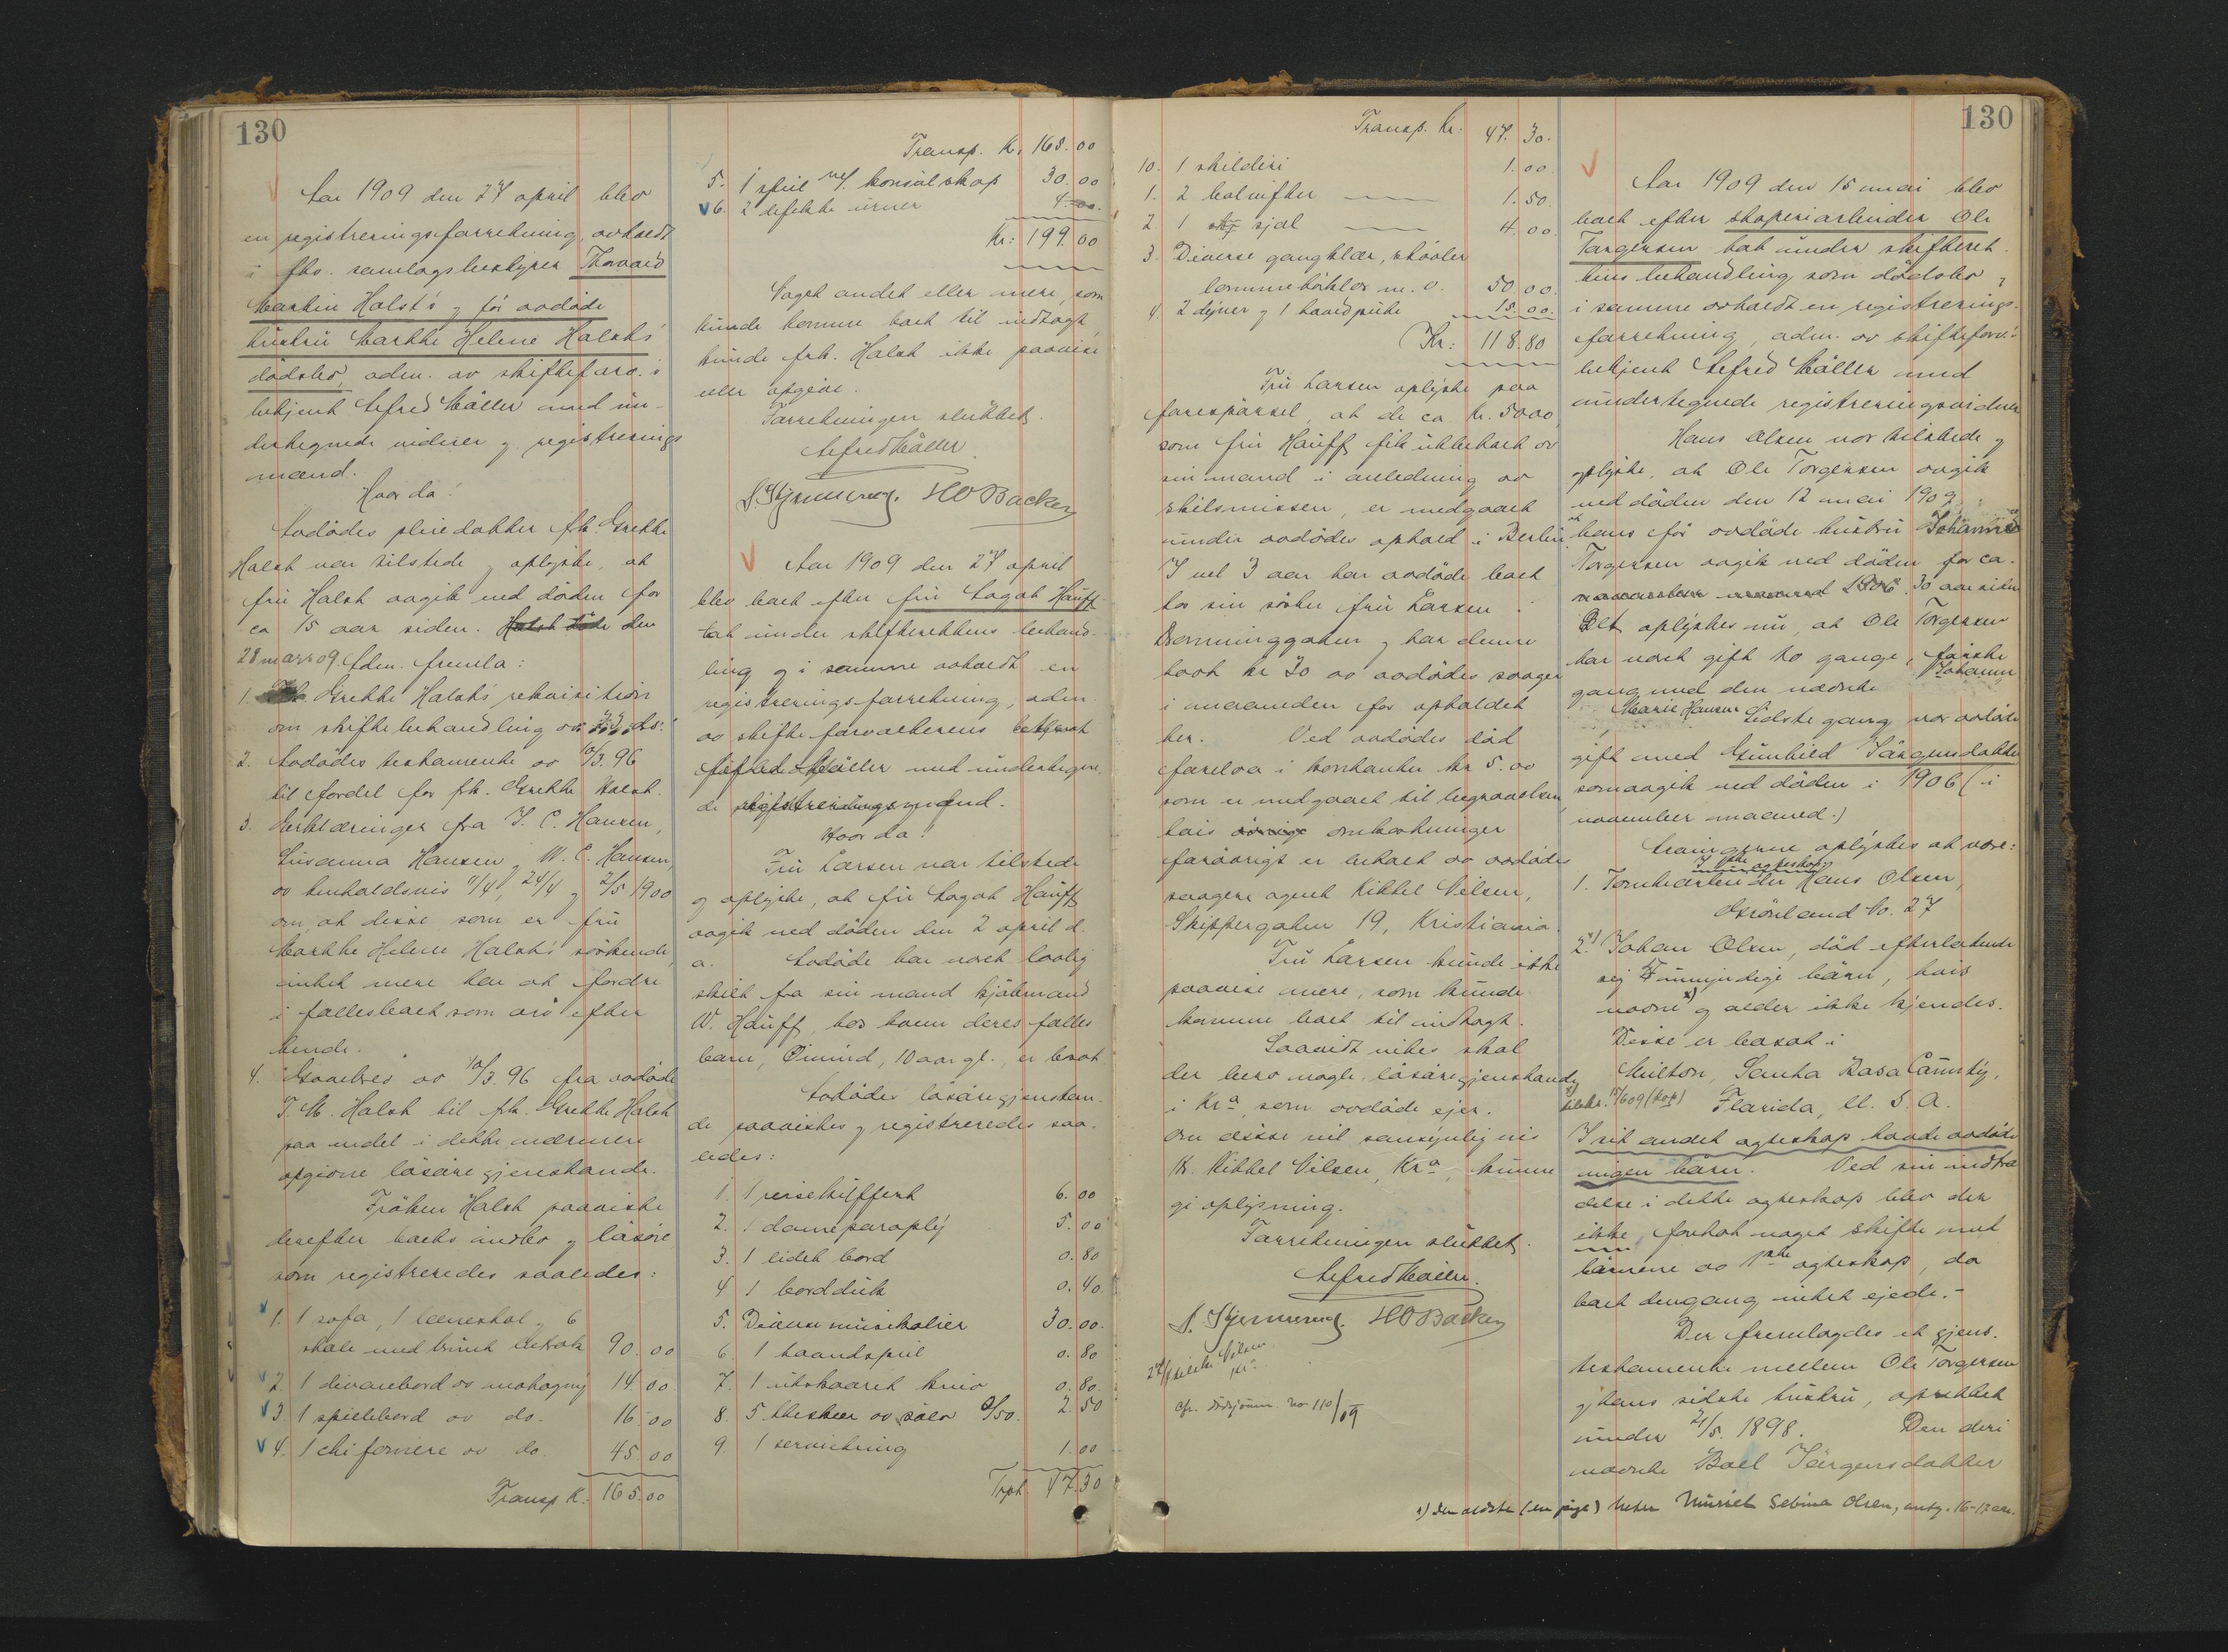 130
Aar 1909 den 27 april blev
en registreringsforretning avholdt
i fhv. samlagsbestyrer Thorvald
Martin Holst's og før avdøde
hustru Marthe Helene Holst's
dødsbo, adm. av skifteforv.s
betjent Alfred Møller med un-
dertegnede vidner og registrerings
mænd.
Hvor da!
Avdødes pleiedatter frk. Grethe
Holst var tilstede og oplyste, at
fru Holst avgik ved døden for
ca 15 aar siden. Holst døde den
28 mars 09. Adm. fremla:
1. Grethe Holst's rekvisition
om skiftebehandling av
2. Avdødes testamente av 10/3. 96
til fordel for frk. Grethe Holst.
3. Erklæringer fra J. C. Hansen,
Susanna Hansen og W. C. Hansen,
av henholdsvis 11/4, 24/4 og 2/5 1900
om at disse som er fru
Marthe Helene Holst's søskende,
intet mere har at fordre
i fællesboet som arv efter
hende.
4. Gavebrev av 10/3. 96 fra avdøde
T. M. Holst til frk. Grethe Holst
paa endel i dette nærmere
opgivne løsøregjenstande.
Frøken Holst paaviste
derefter boets indbo og løsøre
som registreredes saaledes:
1. 1 sofa, 1 lænestol og 6
stole med brunt betræk 90.00
2. 1 divanebord av mahogny 14.00
3. 1 spillebord av do. 16.00
4. 1 chifoniere av do. 45.00
Transp K. 165.00
Transp. K. 168.00
5. 1 speil m/ konsolskap 30.00
6. 2 defekte urner 4.00.
Kr: 199.00
Noget andet eller mere, som
kunde komme boet til indtægt,
kunde frk. Holst ikke paavise
eller opgive.
Forretningen sluttet.
Alfred Møller.
HO Backer
Aar 1909 den 27 april
blev boet efter fru Hauff
tat under skifterettens behand-
ling og i samme avholdt en
registreringsforretning, adm.
av skifteforvalterens betjent
Alfred Møller med undertegne-
de registreringsmænd.
Hvor da!
Fru Larsen var tilstede
og oplyste, at fru Hauff
avgik ved døden den 2 april d.
a. Avdøde har været lovlig
skilt fra sin mand kjøbmand
W. Hauff, hos hvem deres fælles
barn, Øivind, 10 aar gl., er bosat
Avdødes løsøregjenstan-
de paavistes og registreredes saa-
ledes:
1. 1 reisekuffert 6.00
2. 1 dameparaply 5.00
3. 1 lidet bord 0.80
4 1 bordduk 0.40
5. Diverse musikalier 30.00.
6. 1 haandspeil 0.80
7. 1 utskaaret kniv 0.80.
8. 5 theskeer av sølv à/50. 2.50
9. 1 serviettring 1.00
Trpt 47.30
130
Transp. Kr. 47.30.
10. 1 skilderi 1.00
1. 2 halvifter 1.50.
2. 1 sjal 4.00
3. Diverse gangklær, støvler
lommetørklær m. v. 50.00.
4. 2 dyner og 1 hovedpute 15.00.
Kr: 118.80
Fru Larsen oplyste paa
forespørsel, at de ca kr. 5000,
som fru Hauff fik utbetalt av
sin mand i anledning av
skilsmissen, er medgaaet
under avdødes ophold i Berlin.
I vel 3 aar har avdøde boet
hos sin søster fru Larsen i
Dronninggaten og har denne
faat kr 30 av avdødes saager
i maaneden for opholdet
her. Ved avdødes død
forelaa i kontanter kr 5.00
som er medgaaet til begravelsen,
hvis omkostninger
forøvrigt er betalt av avdødes
saagere agent Kittel Nilsen,
Skippergaten 19, Kristiania.
Fru Larsen kunde ikke
paavise mere, som kunde
komme boet til indtægt.
Saavidt vites skal
der bero nogle løsøregjenstande
i Kra, som avdøde ejer.
Om disse vil sansynligvis
Hr. Kittel Nilsen, Kra, kunne
gi oplysning.
Forretningen sluttet.
Alfred Møller.
HO Backer
cfr. dødsjourn. no 110/09
Aar 1909 den 15 mai blev
boet efter skoperiarbeider Ole
Torgersen tat under skifteret-
tens behandling som dødsbo og
i samme avholdt en registrerings-
forretning, adm. av skifteforv.'s
betjent Alfred Møller med
undertegnede registreringsvidner
Hans Olsen var tilstede og
oplyste, at Ole Torgersen avgik
ved døden den 12 mai 1909;
hans før avdøde hustru Johanne
Torgersen avgik ved døden for ca.
30 aar siden
Det oplystes nu, at Ole Torgersen
har været gift to gange, første
gang med den nævnte Johanne
Marie Hansen Sidste gang var avdøde
gift med Gunhild Jørgensdatter
som avgik ved døden i 1906 (i
november maaned.)
Arvingerne oplystes at være:
I 1ste egteskap
1. Tomtearbeider Hans Olsen,
Grønland No. 27
2. Johan Olsen, død efterlatende
sig 4 umyndige børn, hvis
navne x) og alder ikke kjendes.
Disse er bosat i
Milton, Santa Rosa County,
Florida, U. S. A.
I sit andet egteskap havde avdøde
ingen børn. Ved sin indtræ
delse i dette egteskap blev der
ikke foretat noget skifte med
børnene av 1ste egteskap, da
boet dengang intet ejede.-
Der fremlagdes et gjens.
testamente mellem Ole Torgersen
og hans sidste hustru, oprettet
under 21/5. 1898. Den deri
nævnte Boel Jørgensdatter
x) Den ældste (en pige) heter Muriel Sebina Olsen, antg. 16-17 aar.